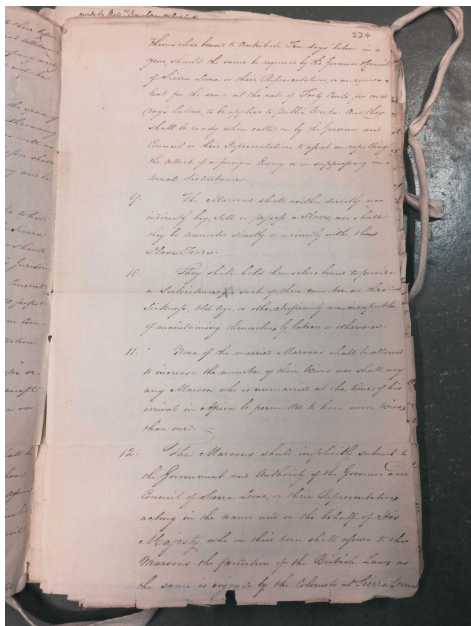 234
themselves bound to contribute Ten days labour in a
year, should the same be required by the Governor & Council
of Sierra Leone or their Representatives, or an equiva-
lent for the same at the rate of Forty Cents for one
day's labour, to be applied to public Works. And they
shall be ready when called on by the Governor and
Council or their Representatives to assist in repelling
the attack of a foreign Enemy or in suppressing in-
ternal Disturbance.
9. The Maroons shall neither directly nor
indirectly buy, Sell or possess a Slave, nor shall
they be connected directly or indirectly with the
Slave Trade.
10. They shall hold themselves bound to provide
a Subsistence for such of their number as thro'
Sickness, Old age, or other Infirmity are incapable
of maintaining themselves by labour or otherwise.
11. None of the married Maroons shall be allowed
to increase the number of their Wives nor shall any
any Maroon who is unmarried at the time of his
arrival in Africa be permitted to have more wives
than one.
12. The Maroons shall implicitly submit to
the Government and Authority of the Governor and
Council of Sierra Leone, or their Representatives
acting in the name and on the behalf of His
Majesty, who in their turn shall assure to the
Maroons the protection of the British Laws as
the same is enjoyed by the Colonists at Sierra Leone